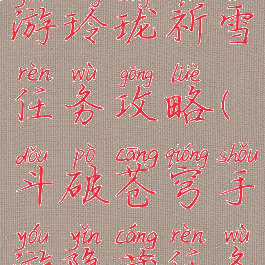 游玲珑祈雪
rèn wù gōng lüè
任务攻略(
dǒu pò cāng qióng shǒu
斗破苍穹手
yóu yǐn cáng rèn wù
游隐藏任务